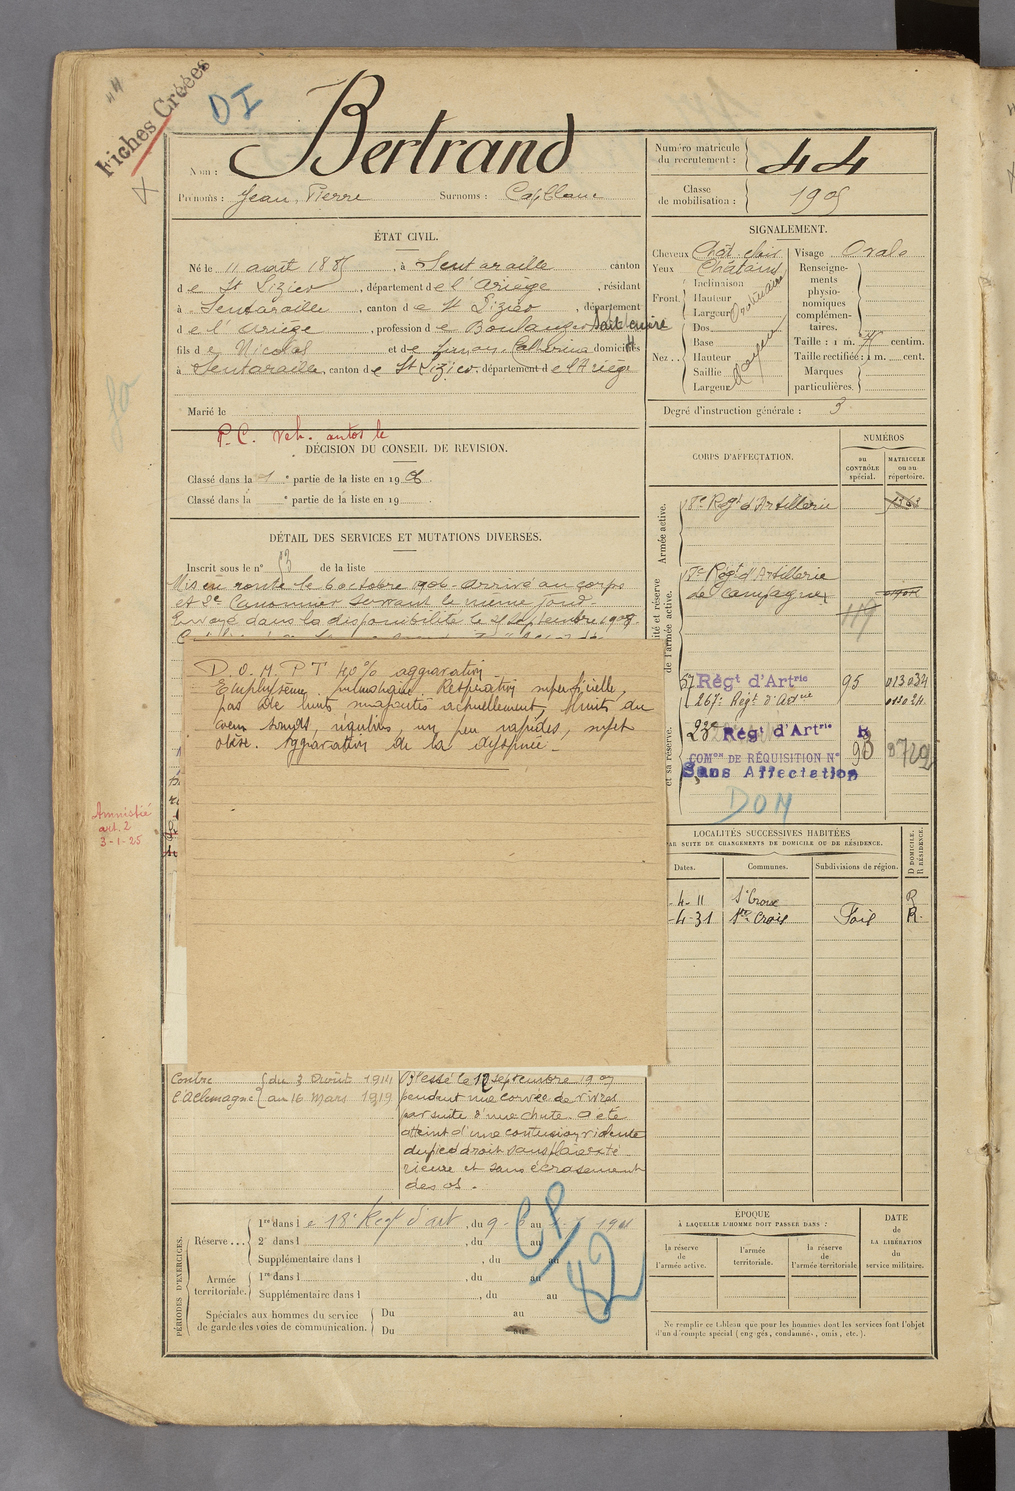 44
Fiches Créées
DI
Nom : Bertrand
Prénoms : Jean, Pierre Surnoms : Capblanc
Numéro matricule du recrutement : 44
Classe de mobilisation : 1905
ÉTAT CIVIL.
Né le 11 août 1885, à Sentaraille canton
d e St Lizier, département d e l'Ariège, résidant
à Sentaraille, canton d e St Lizier, département
d e l'Ariège, profession d e Boulanger
fils d e Nicolas et d e Catherine domiciliés
à Sentaraille, canton d e St Lizier, département d e l'Ariège
Marié le
P.C. veh. autos le
SIGNALEMENT.
Cheveux Chât clair
Yeux Châtains
Front
Inclinaison
Hauteur
Largeur
Nez
Dos
Base
Hauteur
Saillie
Largeur
Moyen
Visage Ovale
Renseignements physionomiques complémentaires.
Taille : 1 m. centim.
Taille rectifiée : 1 m. cent.
Marques particulières.
Degré d'instruction générale : 3
DÉCISION DU CONSEIL DE REVISION.
Classé dans la 1e partie de la liste en 1906.
Classé dans la e partie de la liste en 19 .
DÉTAIL DES SERVICES ET MUTATIONS DIVERSES.
Inscrit sous le n° 53 de la liste
Mis en route le 6 octobre 1906 - arrivé au corps
et 2e Canonnier servant le même jour.
Envoyé dans la disponibilité le septembre 1908
D.O.M. P T 40% aggravation
Emphysème pulmonaire. Respiration superficielle,
pas de bruits surajoutés actuellement, bruits du
coeur sourds, réguliers, un peu rapides, sujet
obèse. Aggravation de la dyspnée.
Amnistié
art. 2
3-1-25
CORPS D'AFFECTATION.
NUMÉROS
au CONTRÔLE spécial.
MATRICULE ou au répertoire.
Armée active.
18e Régt d'Artillerie 1363
de l'armée active.
Régt d'Artillerie
de Campagne
119
57 Régt d'Artrie 95 013034
267e Régt d'Artrie
23e Régt d'Artrie
COMon DE RÉQUISITION N° 93
Sans Affectation
DOM
LOCALITÉS SUCCESSIVES HABITÉES
PAR SUITE DE CHANGEMENTS DE DOMICILE OU DE RÉSIDENCE.
Dates. Communes. Subdivisions de région. D DOMICILE. R RÉSIDENCE.
-4-11 Ste Croix R
-4-31 Ste Croix Foix R.
Contre l'Allemagne { du 3 Août 1914 au 16 Mars 1919
Blessé le 12 septembre 1907
pendant une corvée de vivres
par suite d'une chute. a été
atteint d'une contusion violente
du pied droit sans plaie exté
rieure et sans écrasement
des os.
PÉRIODES D'EXERCICES.
Réserve
1re dans l e 18e Regt d'art, du 9- au 1911
2e dans l , du au
Supplémentaire dans l , du au
Armée territoriale.
1re dans l , du au
Supplémentaire dans l , du au
Spéciales aux hommes du service de garde des voies de communication.
Du au
Du au
ÉPOQUE
À LAQUELLE L'HOMME DOIT PASSER DANS :
la réserve de l'armée active.
l'armée territoriale.
la réserve de l'armée territoriale
DATE
de
LA LIBÉRATION
du
service militaire.
Ne remplir ce tableau que pour les hommes dont les services font l'objet
d'un décompte spécial (engagés, condamnés, omis, etc.).